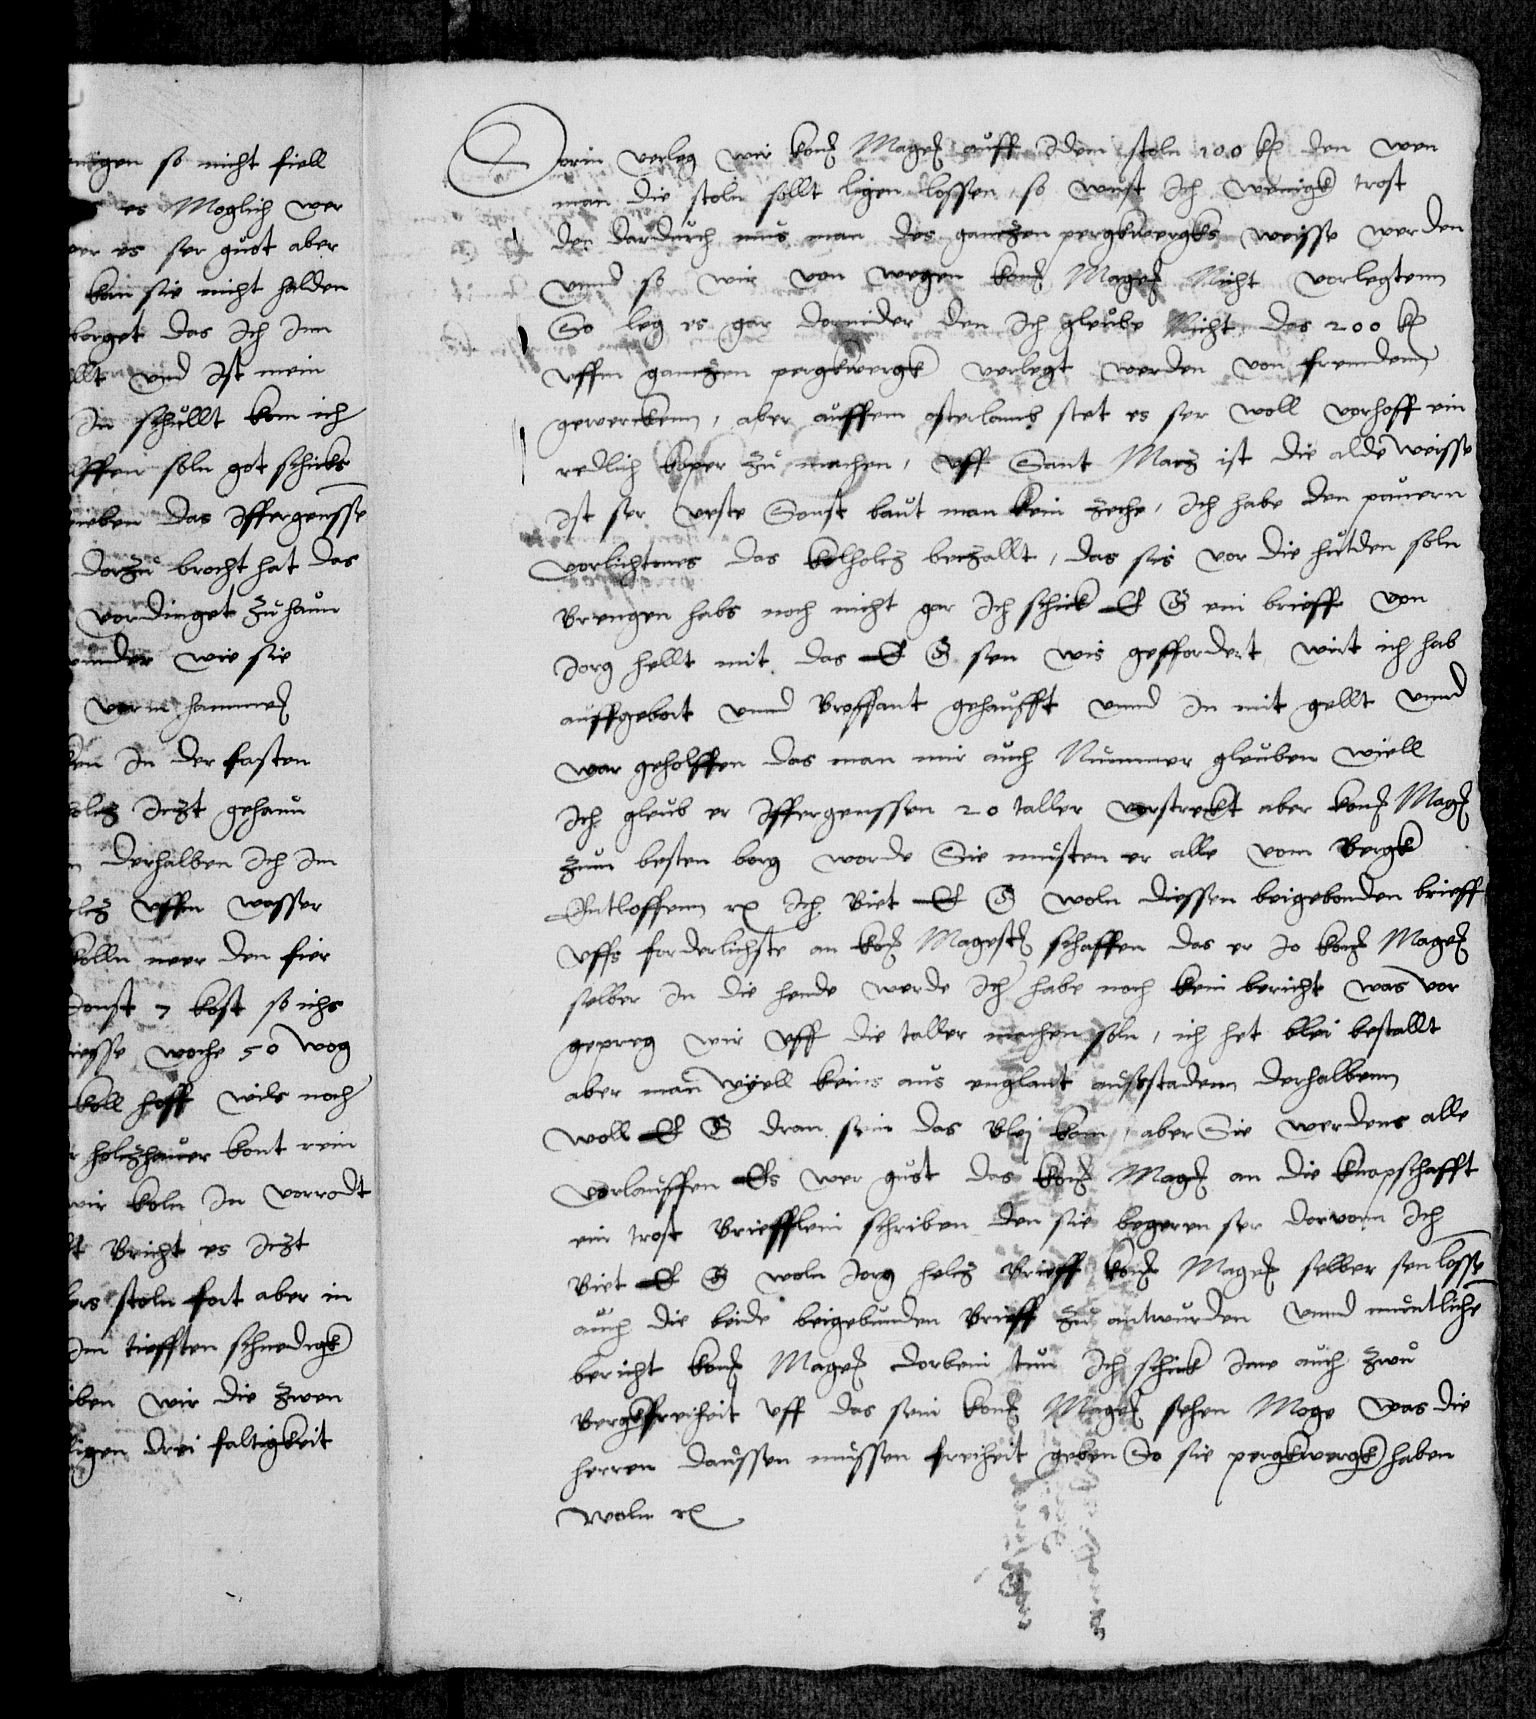 enigen so nicht fiell
es Moglich wer
wer es ser guot aber
kan sie nicht halden
borget das Ich Inn
ollt vnd Ist mein
In schullt kom ich
offen soln got schicks
eneben das Iffergensse
dorzu brocht hat das
vordinget zu haun
under wie sie
vorm hammer
ken In der fasten
holcz Iczt gehaun
n derhalben Ich Im
holcz vffen wasser
kolln mer den fier
sonst 7 kost so ichs
diesse woche 50 wog
koll hoff wils noch
r holczhauer kont rein
wir koln In vorrodt
lt Bricht es Iczt
lers stoln fort aber in
Im tiefften schnedigk
iben wir die zwen
ligen drei faltigkeit
Dorin verleg wir konʒ Mageʒ auff Idem stoln 100 kʒ den wen
man die stoln sollt ligen lossen, so wust Ich wenigk trost
den dardurch mus man des ganczen pergkwergks weisse werden
vnnd so wir von wegen konʒ Mageʒ Nicht vorlegtenn
So leg es gar dernider den Ich gleube Nicht das 200 kʒ
vffm ganczen pergkwergk verlegt werden von fremden
gewercken, aber auffem osterlamb stet es ser woll vorhoff ein
redlich koper zu machen, vff Sant Marz ist die alde weisse
Ist ser veste Sonst baut man kein zeche, Ich habe den pauern
vorlichtenes das kolholcz beczallt, das sis vor die hutden soln
Brengen habs noch nicht gar Ich schick E G ein brieff von
Jorg hellt mit das E G sen wis geffordert wirt ich hab
auffgebort vnnd Broffant gehaufft vnnd In mit gellt vnnd
war geholffen das man mir auch Nummer gleuben wiell
Ich gleub er Iffergenssen 20 taller vorstreckt aber konʒ Mageʒ
zum besten borg worde Sie musten er alle vom Bergk
Entloffenn rʒ Ich Biet E G woln diessen beigebonden brieff
vffs forderlichste an konʒ Magestʒ schaffen das er Jo konʒ Mageʒ
selber In die hende werde Ich habe noch kein bericht was vor
gepreg wir vff die taller machen soln, ich het blei bestallt
aber man wyell keins aus englant ausstadenn derhalbenn
woll E G dran sein das Blej kom, aber Sie werdens alle
vorlauffen Es wer guot das konʒ Mageʒ an die knapschafft
ein trost Briefflein schriben den sie begeren ser dorvom Ich
Biet E G woln Jorg holcz Brieff konʒ Mageʒ selber sen losse
auch die beide beigebunden Brieff zu antwurden vnnd muntliche
bericht konʒ Mageʒ dorbein tun Ich schick Ime auch zwu
Bergkfreiheit vff das sein konʒ Mageʒ sehen Moge was die
herren daussen mussen freiheit geben So sie pergkwergk haben
woln rʒ